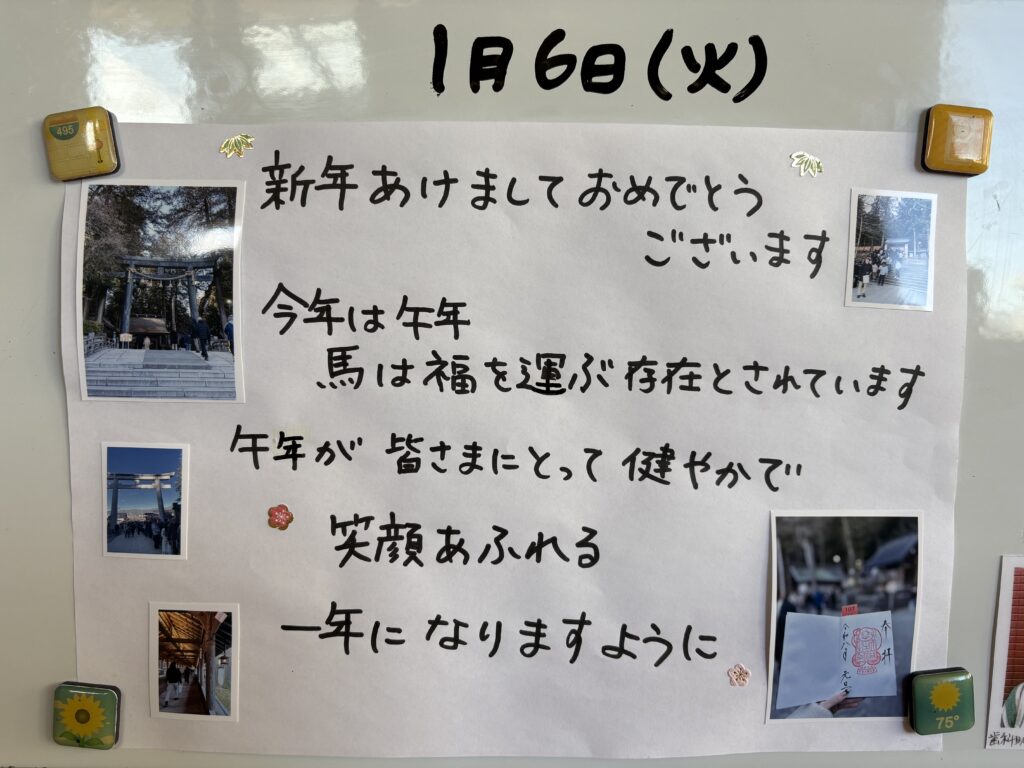 1月6日(火)
新年あけましておめでとう
ございます
今年は午年
馬は福を運ぶ存在とされています
午年が 皆さまにとって 健やかで
笑顔あふれる
一年になりますように
495
奉拝
令和八年 元旦
75°
歯科助